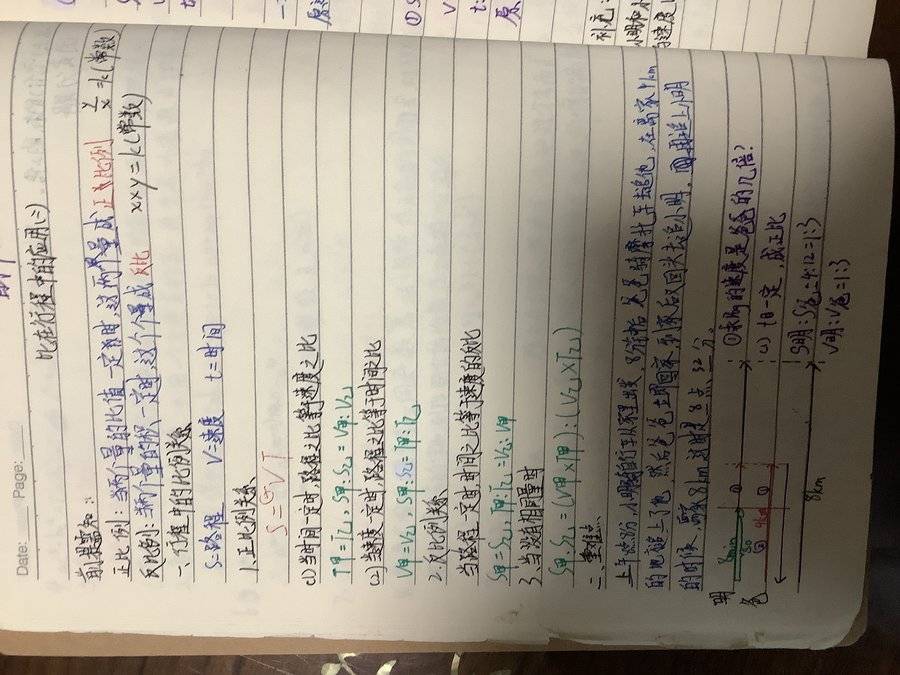 Date: Page:
比在行程中的应用(二)
前提需知:
正比例:当两个量的比值一定时,这两个量成正比例 y/x=k(常数)
反比例:当两个量的积一定时,这个量成反比 x×y=k(常数)
一、行程中的比例关系
S=路程 V=速度 t=时间
1.正比例关系 S=VT
(1)当时间一定时,路程之比等于速度之比
T甲=T乙,S甲:S乙=V甲:V乙
(2)当速度一定时,路程之比等于时间之比
V甲=V乙,S甲:S乙=T甲:T乙
2.反比例关系
当路程一定时时间之比等于速度的反比
S甲=S乙,T甲:T乙=V乙:V甲
3.当没有相同量时
S甲:S乙=(V甲×T甲):(V乙×T乙)
二、重难点
上午8点8分,小明骑自行车从家里出发,8分钟后爸爸骑摩托车去追他,在离家4km
的地方追上了他,然后爸爸立即回家,到家后又回头去追小明,再追上小明
的时候,离家8km,这时是8点32分。
明 8min
爸 4km
8km
①求小明的速度是爸爸的几倍?
(1)t一定,成正比
S明:S爸=4:12=1:3
V明:V爸=1:3